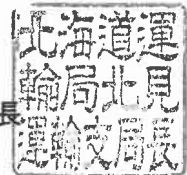 長
北海道運
輸局北見
運輸支局長